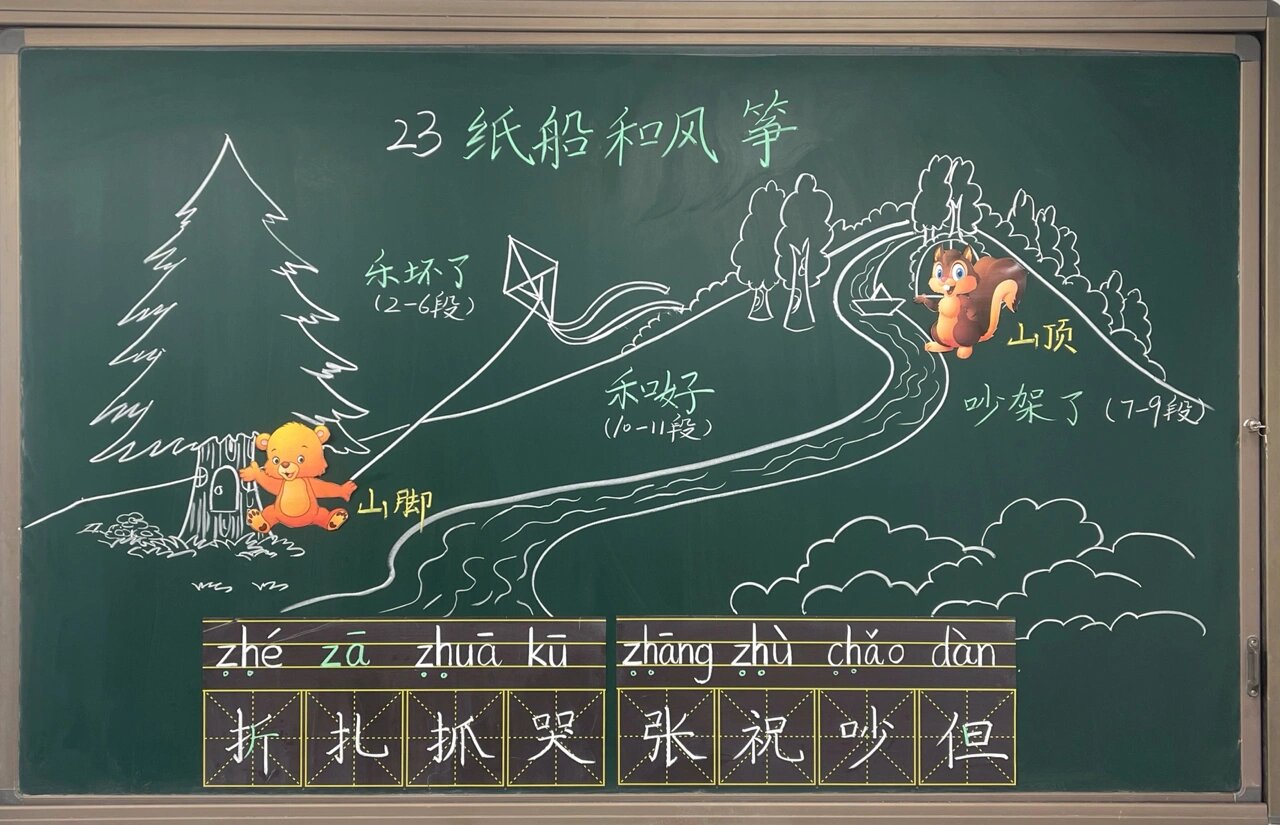 23 纸船和风筝
乐坏了
(2-6段)
和好
(10-11段)
山顶
吵架了 (7-9段)
山脚
zhé zā zhuā kū zhāng zhù chǎo dàn
折 扎 抓 哭 张 祝 吵 但